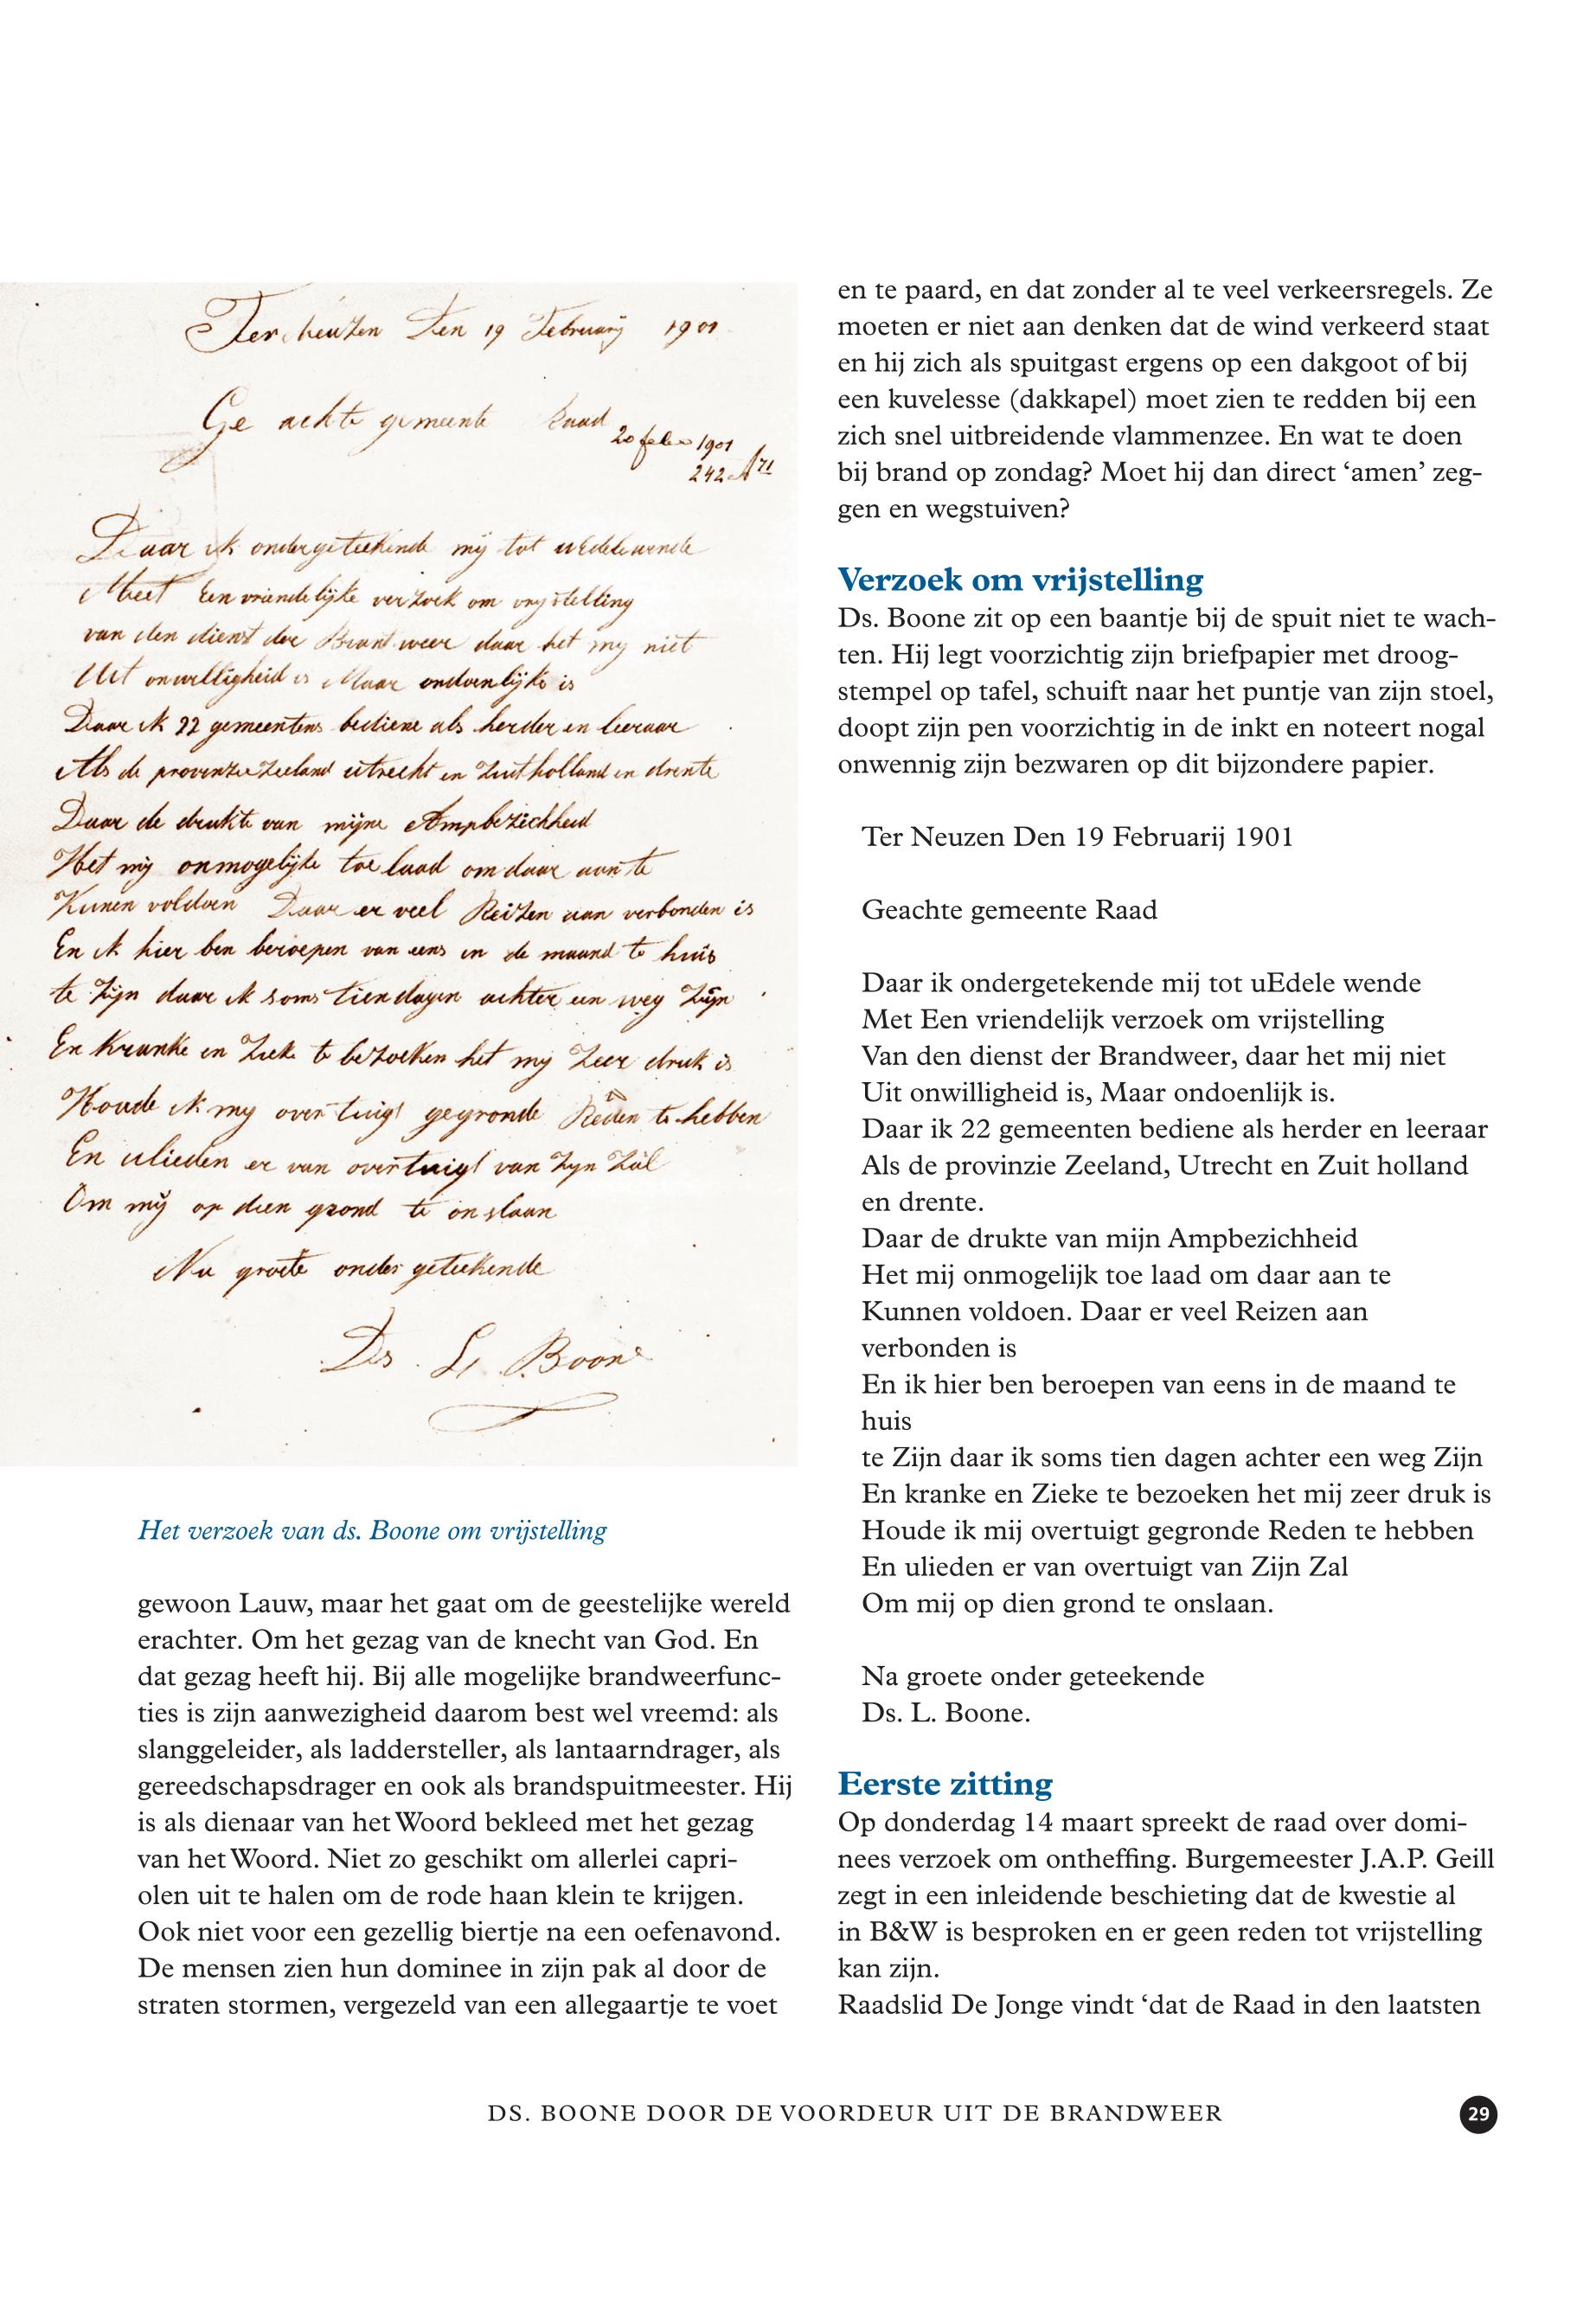 Ter Neuzen Den 19 Februarij 1901
Ge achte gemeente Raad
20 febr 1901
242 A 71
Daar ik ondergeteekende mij tot uEdele wende
Meet Een vriendelijke verzoek om vrijstelling
van den dienst der Brant weer daar het mij niet
Uit onwilligheid is Maar ondoenlijke is
Daar ik 22 gemeentens bediene als herder en leeraar
Als de provinzie Zeeland utrecht en Zuit holland en drente
Daar de drukte van mijne Ampbezichheid
Het mij onmogelijke toe laad om daar aan te
Kunen voldoen Daar er veel Reizen aan verbonden is
En ik hier ben beroepen van eens in de maand te huis
te Zijn daar ik soms tien dagen achter een weg Zijn
En Kranke en Zieke te bezoeken het mij Zeer druk is
Houde ik mij over tuigt gegronde Reden te hebben
En ulieden er van overtuigt van Zijn Zal
Om mij op dien grond te onslaan
Na groete onder geteekende
Ds. L. Boone
Het verzoek van ds. Boone om vrijstelling
gewoon Lauw, maar het gaat om de geestelijke wereld
erachter. Om het gezag van de knecht van God. En
dat gezag heeft hij. Bij alle mogelijke brandweerfunc-
ties is zijn aanwezigheid daarom best wel vreemd: als
slanggeleider, als laddersteller, als lantaarndrager, als
gereedschapsdrager en ook als brandspuitmeester. Hij
is als dienaar van het Woord bekleed met het gezag
van het Woord. Niet zo geschikt om allerlei capri-
olen uit te halen om de rode haan klein te krijgen.
Ook niet voor een gezellig biertje na een oefenavond.
De mensen zien hun dominee in zijn pak al door de
straten stormen, vergezeld van een allegaartje te voet
en te paard, en dat zonder al te veel verkeersregels. Ze
moeten er niet aan denken dat de wind verkeerd staat
en hij zich als spuitgast ergens op een dakgoot of bij
een kuvelesse (dakkapel) moet zien te redden bij een
zich snel uitbreidende vlammenzee. En wat te doen
bij brand op zondag? Moet hij dan direct ‘amen’ zeg-
gen en wegstuiven?
Verzoek om vrijstelling
Ds. Boone zit op een baantje bij de spuit niet te wach-
ten. Hij legt voorzichtig zijn briefpapier met droog-
stempel op tafel, schuift naar het puntje van zijn stoel,
doopt zijn pen voorzichtig in de inkt en noteert nogal
onwennig zijn bezwaren op dit bijzondere papier.
Ter Neuzen Den 19 Februarij 1901
Geachte gemeente Raad
Daar ik ondergetekende mij tot uEdele wende
Met Een vriendelijk verzoek om vrijstelling
Van den dienst der Brandweer, daar het mij niet
Uit onwilligheid is, Maar ondoenlijk is.
Daar ik 22 gemeenten bediene als herder en leeraar
Als de provinzie Zeeland, Utrecht en Zuit holland
en drente.
Daar de drukte van mijn Ampbezichheid
Het mij onmogelijk toe laad om daar aan te
Kunnen voldoen. Daar er veel Reizen aan
verbonden is
En ik hier ben beroepen van eens in de maand te
huis
te Zijn daar ik soms tien dagen achter een weg Zijn
En kranke en Zieke te bezoeken het mij zeer druk is
Houde ik mij overtuigt gegronde Reden te hebben
En ulieden er van overtuigt van Zijn Zal
Om mij op dien grond te onslaan.
Na groete onder geteekende
Ds. L. Boone.
Eerste zitting
Op donderdag 14 maart spreekt de raad over domi-
nees verzoek om ontheffing. Burgemeester J.A.P. Geill
zegt in een inleidende beschieting dat de kwestie al
in B&W is besproken en er geen reden tot vrijstelling
kan zijn.
Raadslid De Jonge vindt ‘dat de Raad in den laatsten
DS. BOONE DOOR DE VOORDEUR UIT DE BRANDWEER
29